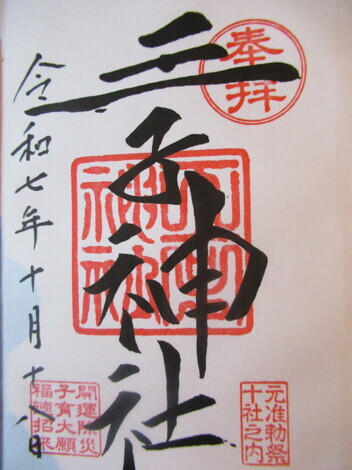 奉拝
王子神社
令和七年十月十八日
元准勅祭
十社之内
開運除災
子育大願
福徳招来